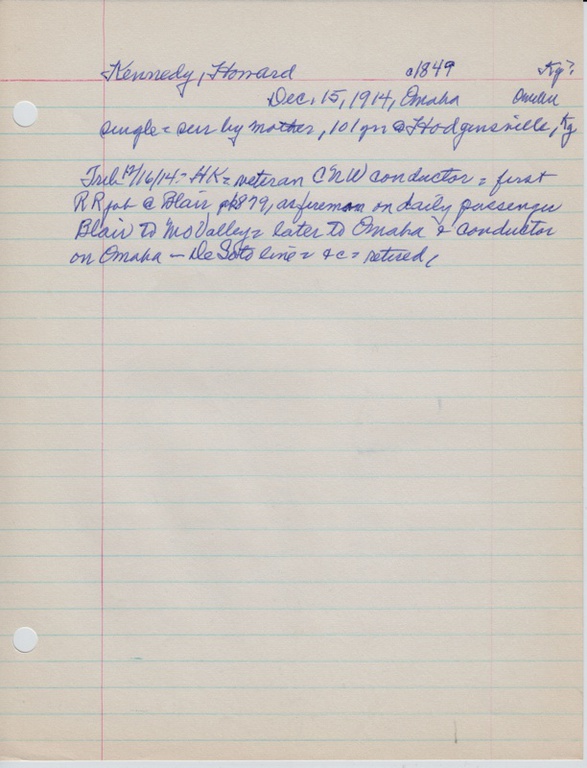 Kennedy, Howard c1849 Ky?
Dec. 15, 1914, Omaha Omaha
single = surv by mother, 101 yrs @ Hodgensville, Ky
Trib 12/16/14 - HK = veteran CNW conductor = first
RR job @ Blair 1879, as fireman on daily passenger
Blair to Mo Valley = later to Omaha & conductor
on Omaha - De Soto line = &c = retired,